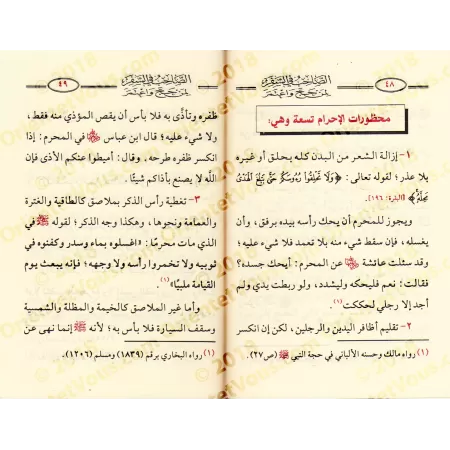 ٤٨
محظورات الإحرام تسعة وهي:
١- إزالة الشعر من البدن كله بحلق أو غيره
بلا عذر؛ لقوله تعالى: ﴿وَلَا تَحْلِقُوا رُءُوسَكُمْ حَتَّى يَبْلُغَ الْهَدْيُ
مَحِلَّهُ﴾ [البقرة: ١٩٦].
ويجوز للمحرم أن يحك رأسه بيده برفق، وأن
يغسله، فإن سقط شيء منه بلا تعمد فلا شيء عليه؛
وقد سئلت عائشة رضي الله عنها عن المحرم: أيحك جسده؟
فقالت: نعم فليحكه وليشدد، ولو ربطت يدي ولم
أجد إلا رجلي لحككت(١).
٢- تقليم أظافر اليدين والرجلين، لكن إن انكسر
(١) رواه مالك وحسنه الألباني في حجة النبي ﷺ (ص٢٧).
٤٩
ظفره وتأذى به فلا بأس أن يقص المؤذي منه فقط،
ولا شيء عليه؛ قال ابن عباس في المحرم: إذا
انكسر ظفره طرحه. وقال: أميطوا عنكم الأذى فإن
الله لا يصنع بأذاكم شيئًا.
٣- تغطية رأس الذكر بملاصق كالطاقية والغترة
والعمامة ونحوها، وهكذا وجه الذكر؛ لقوله ﷺ في
الذي مات محرمًا: «اغسلوه بماء وسدر وكفنوه في
ثوبيه ولا تخمروا رأسه ولا وجهه؛ فإنه يبعث يوم
القيامة ملبيًا»(١)
وأما غير الملاصق كالخيمة والمظلة والشمسية
وسقف السيارة فلا بأس به؛ لأنه ﷺ إنما نهى عن
(١) رواه البخاري برقم (١٨٣٩) ومسلم (١٢٠٦).